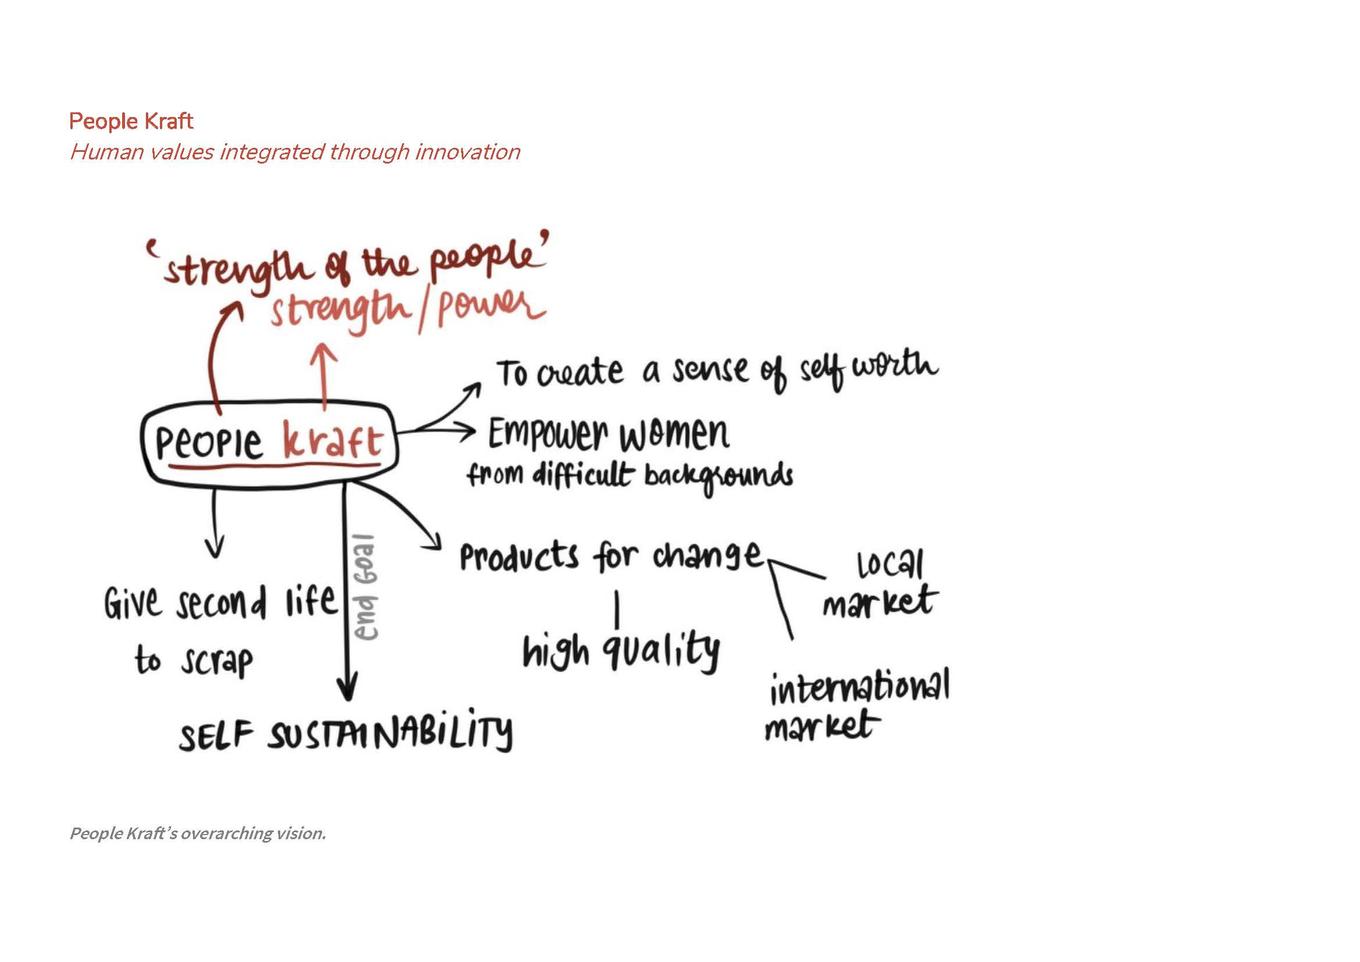 People Kraft
Human values integrated through innovation
'strength of the people'
strength/power
To create a sense of self worth
PEOPLE kraft
EMPOWER WOMEN
from difficult backgrounds
END GOAL
Products for change
LOCAL
market
Give second life
to scrap
high quality
international
market
SELF SUSTAINABiLiTY
People Kraft's overarching vision.